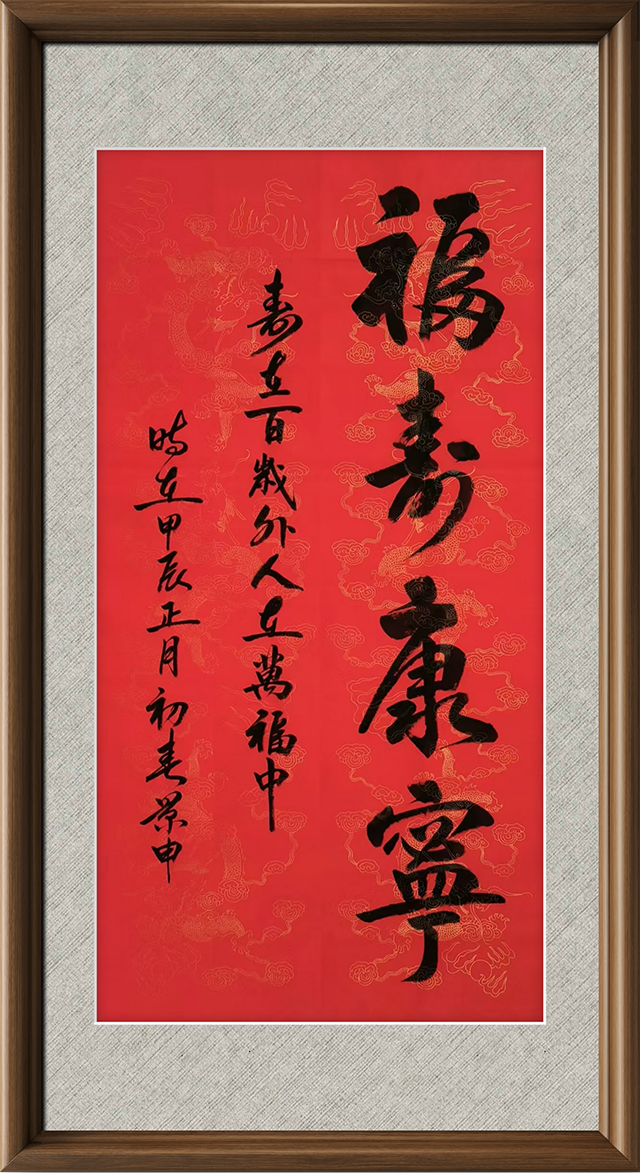 福壽康寧
寿在百歲外人在萬福中
時在甲辰正月初春景申